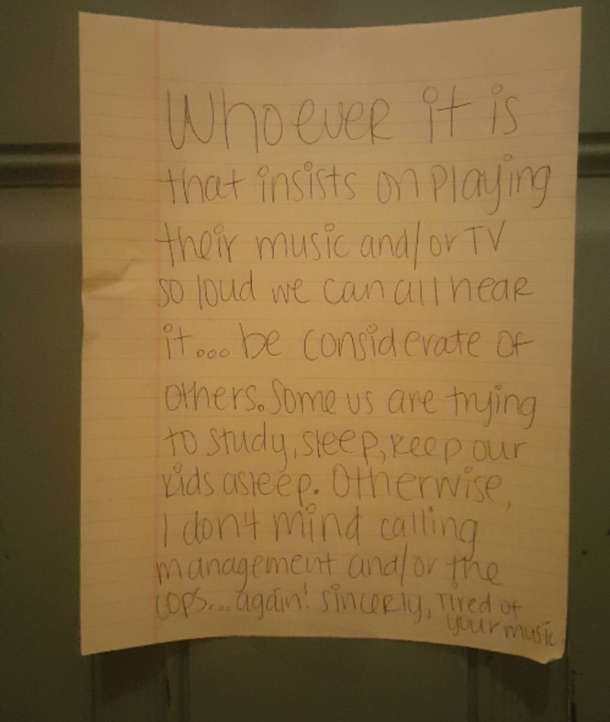 Whoever it is
that insists on playing
their music and/or TV
so loud we can all hear
it... be considerate of
others. Some us are trying
to study, sleep, keep our
kids asleep. Otherwise,
I don't mind calling
management and/or the
cops... again! sincerly, Tired of
your music